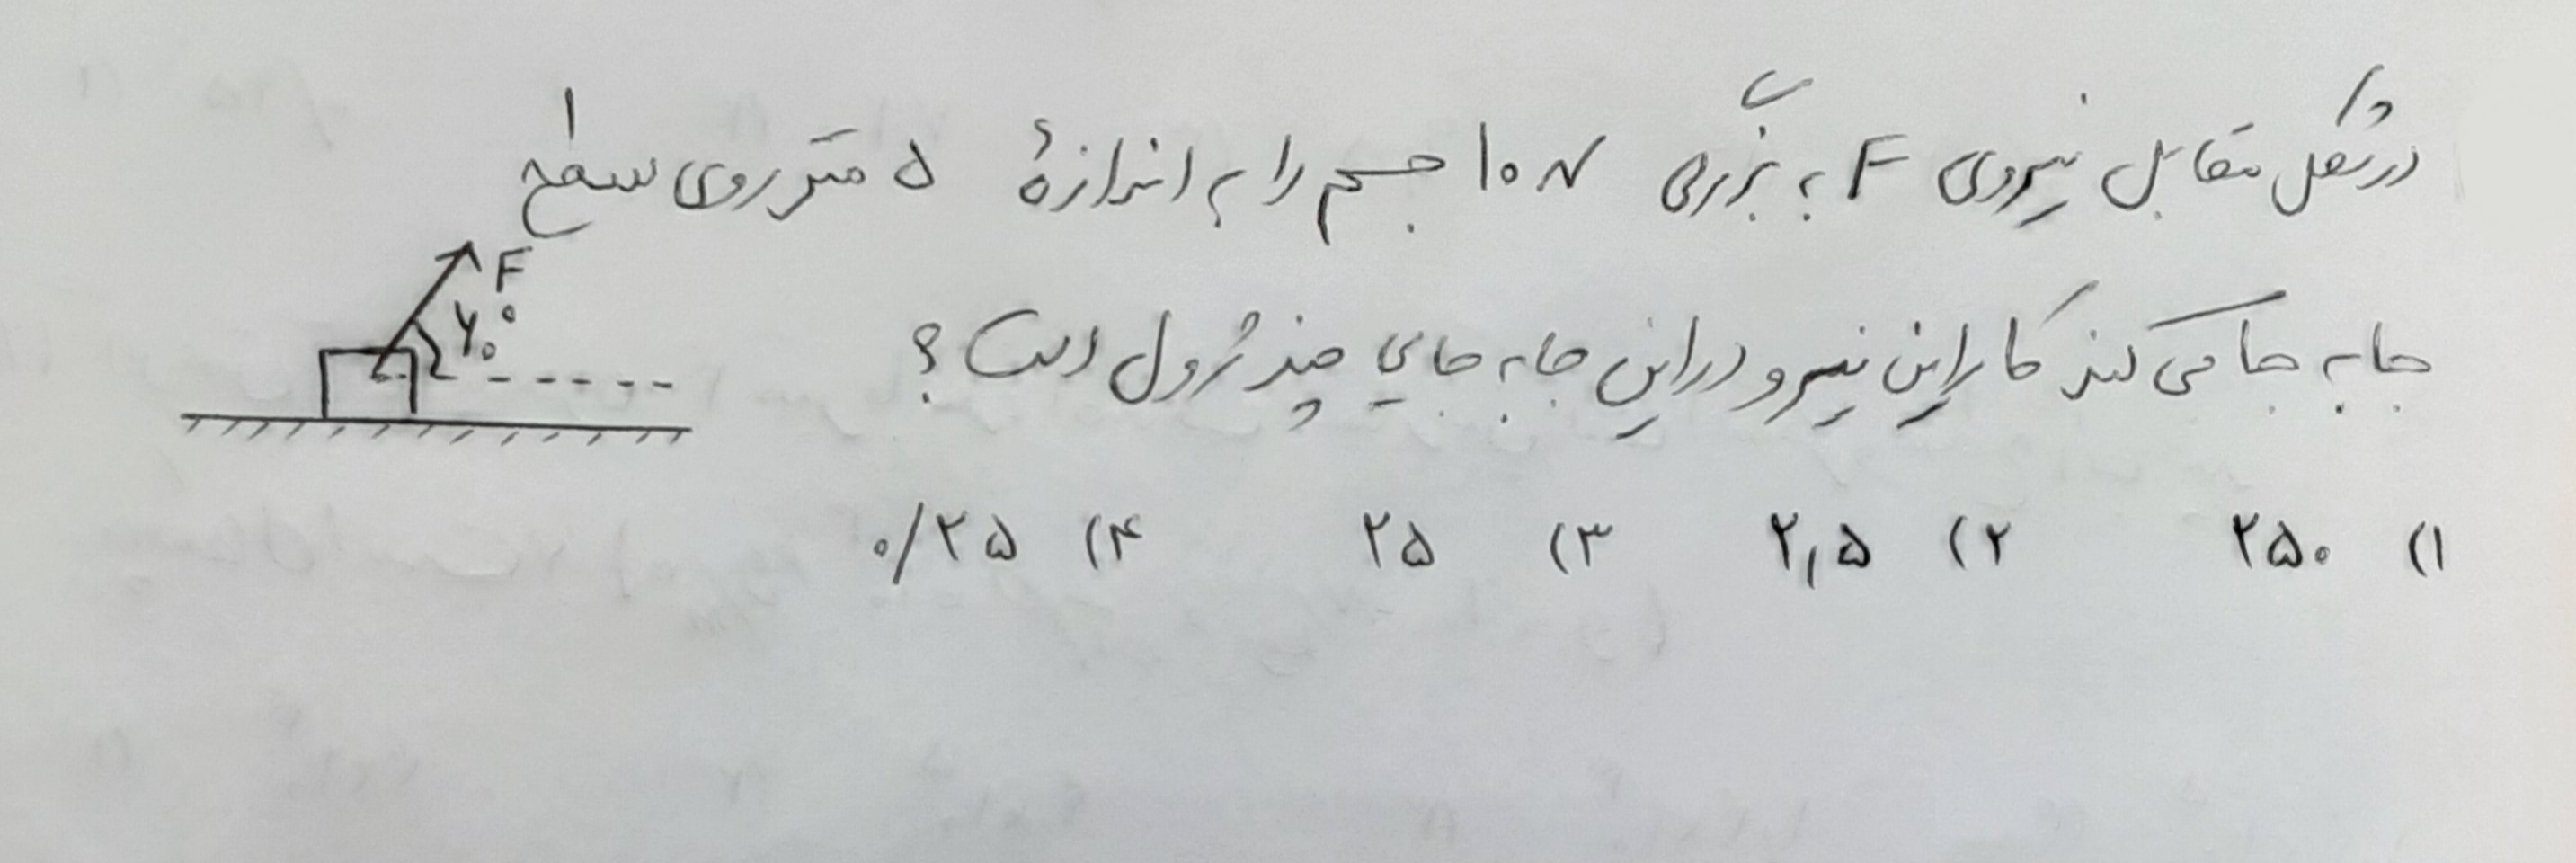 در شکل مقابل نیروی F به بزرگی 10N جسم را به اندازهٔ ۵ متر روی سطح
F
۶۰°
جابه جا می کند کار این نیرو در این جابه جایی چند ژول است؟
۱) ۲۵۰ ۲) ۲,۵ ۳) ۲۵ ۴) ۰/۲۵